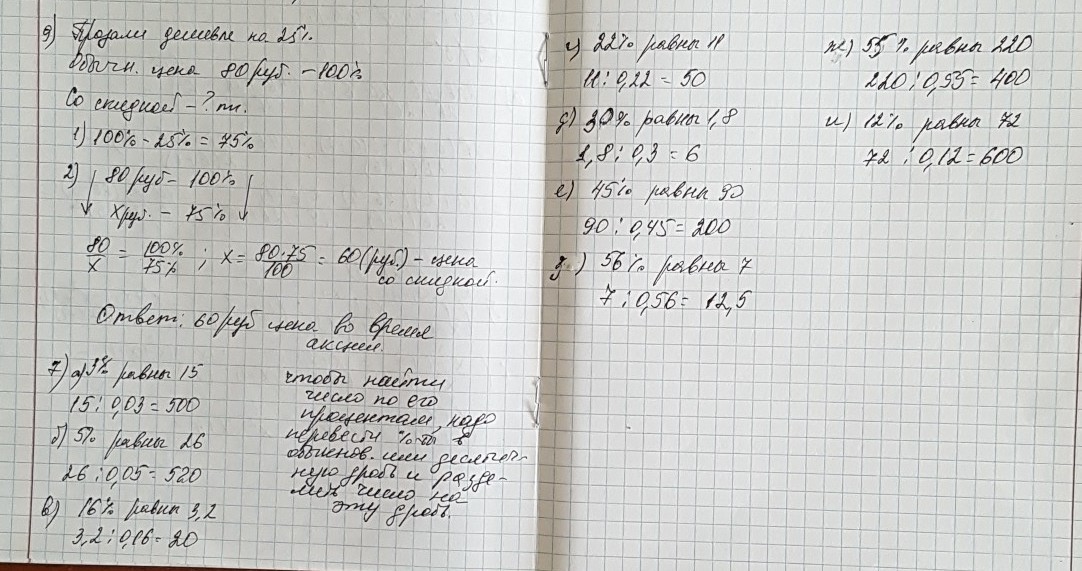 9) Продали дешевле на 25%.
Обычн. цена 80 руб. – 100%
Со скидкой – ? %.
1) 100% - 25% = 75%
2) 80 руб – 100%
x руб. – 75%
80/x = 100%/75% ; x = 80·75/100 = 60 (руб.) – цена
со скидкой.
Ответ: 60 руб цена во время
акции.
7) а) 3% равны 15
15 : 0,03 = 500
б) 5% равны 26
26 : 0,05 = 520
в) 16% равны 3,2
3,2 : 0,16 = 20
чтобы найти
число по его
процентам, надо
перевести %-ты в
обыкнов. или десятич-
ную дробь и разде-
лить число на
эту дробь.
г) 22% равны 11
11 : 0,22 = 50
д) 30% равны 1,8
1,8 : 0,3 = 6
е) 45% равны 90
90 : 0,45 = 200
з) 56% равны 7
7 : 0,56 = 12,5
ж) 55% равны 220
220 : 0,55 = 400
и) 12% равны 72
72 : 0,12 = 600